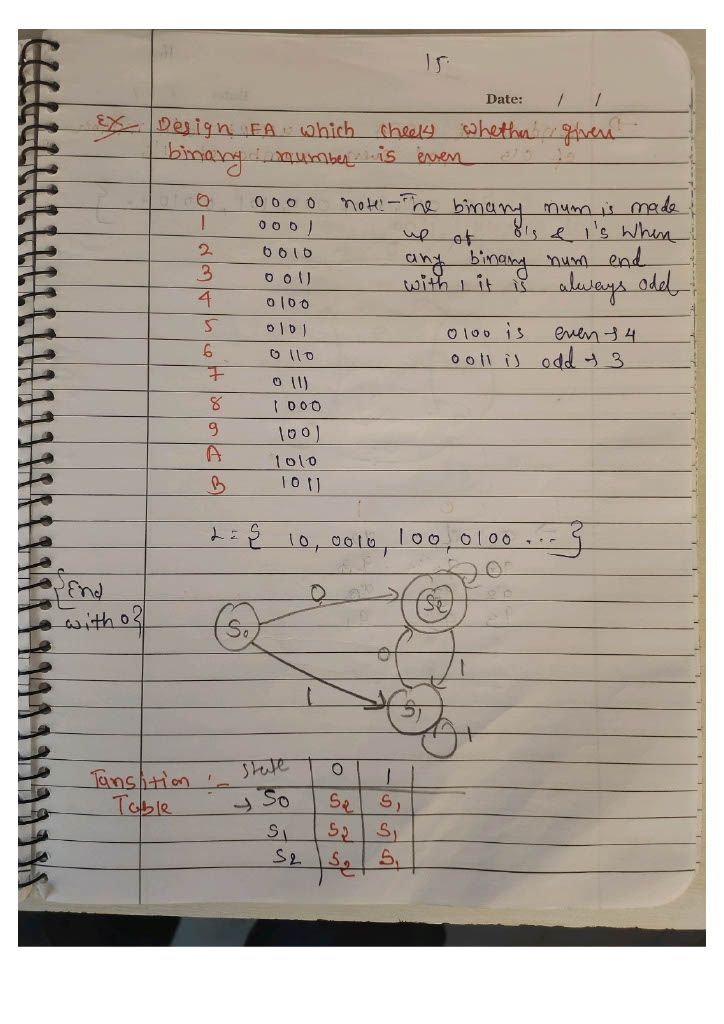 15.
Date: / /
Ex Design FA which checks whether given
binary number is even
0 0000 note:- The binary num is made
1 0001 up of 0's & 1's When
2 0010 any binary num end
3 0011 with 1 it is always odd
4 0100
5 0101 0100 is even → 4
6 0110 0011 is odd → 3
7 0111
8 1000
9 1001
A 1010
B 1011
L = { 10, 0010, 100, 0100 ... }
{End
with 0}
0 S2 0
S0
0 1
1 S1 1
Tansition :- State 0 1
Table → S0 S2 S1
S1 S2 S1
S2 S2 S1